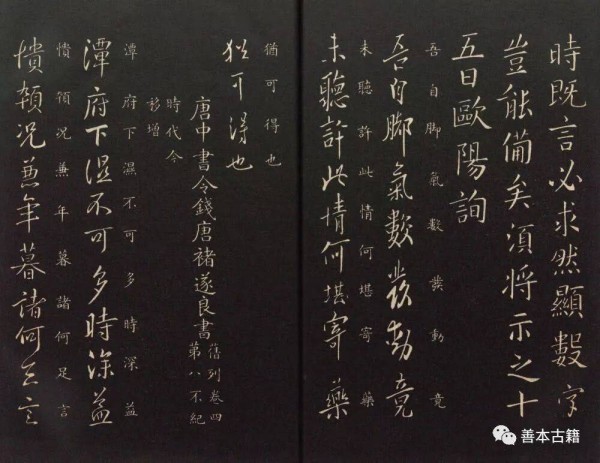 時既言必求然顯數字
豈能備矣須將示之十
五日歐陽詢
吾自脚氣數發動竟
吾自脚氣數發動竟
未聽許此情何堪寄藥
未聽許此情何堪寄藥
猶可得也
猶可得也
唐中書令錢唐褚遂良書
舊列卷四
第八不紀
時代今
移增
潭府下濕不可多時深益
潭府下濕不可多時深益
憒頓况兼年暮諸何足言
憒頓况兼年暮諸何足言
善本古籍